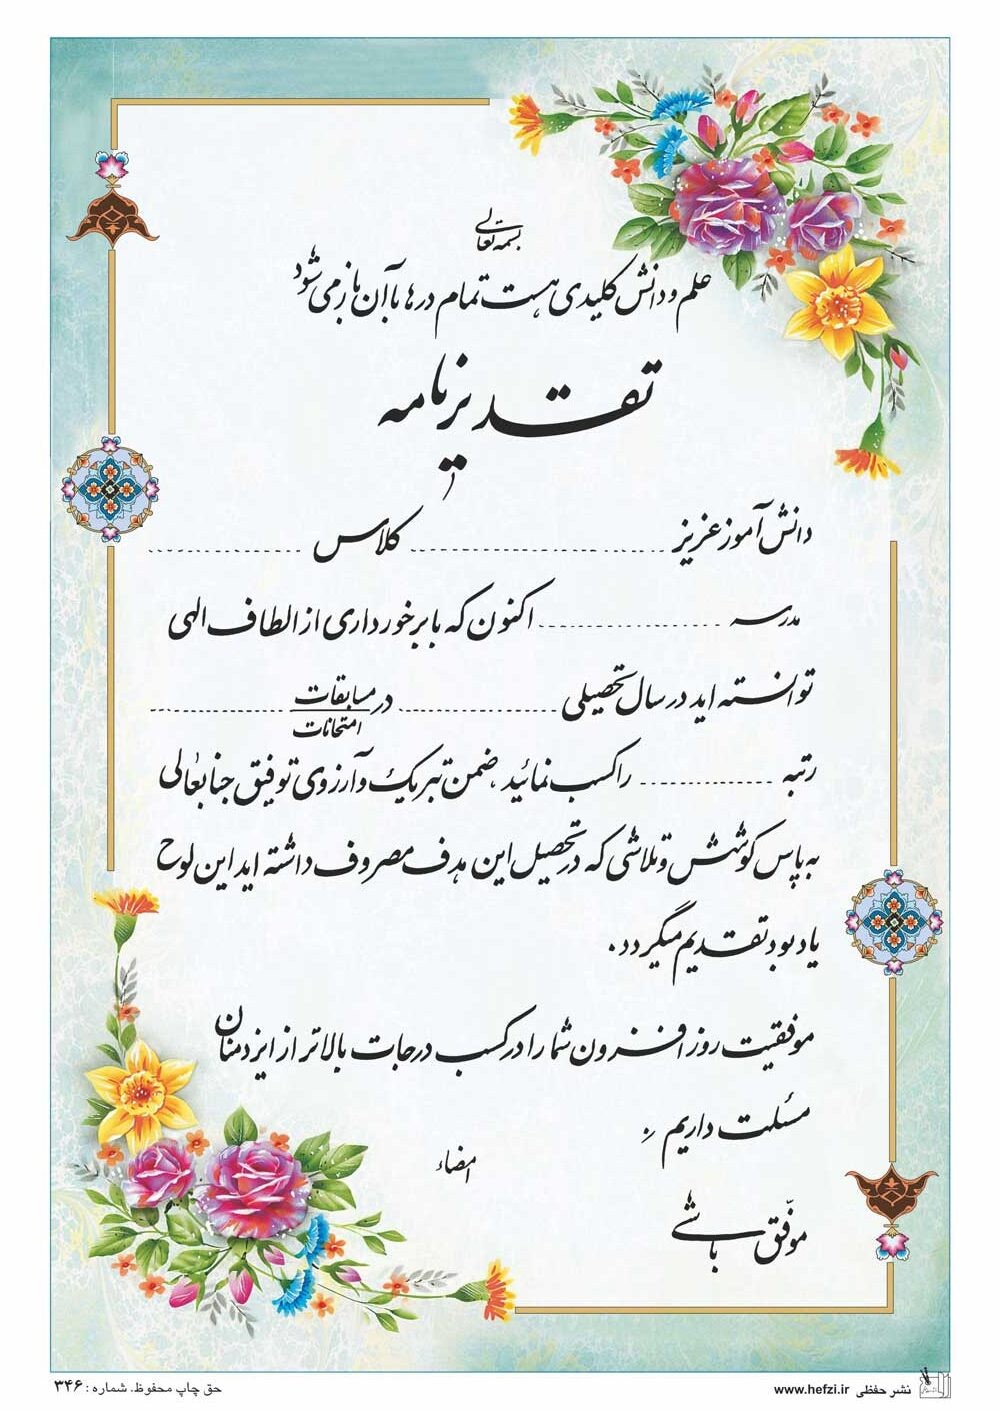 بسمه تعالی
علم و دانش کلیدی هست تمام درها با آن باز می شود
تقدیرنامه
دانش آموز عزیز .................... کلاس ....................
مدرسه .................... اکنون که با برخورداری از الطاف الهی
توانسته اید در سال تحصیلی .................... در مسابقات ....................
امتحانات
رتبه .................... را کسب نمائید، ضمن تبریک و آرزوی توفیق جنابعالی
به پاس کوشش و تلاشی که در تحصیل این هدف مصروف داشته اید این لوح
یادبود تقدیم میگردد.
موفقیت روز افزون شما را در کسب درجات بالاتر از ایزد منان
مسئلت داریم.
امضاء
موفّق باشی
نشر حفظی www.hefzi.ir
حق چاپ محفوظ. شماره : ۳۴۶